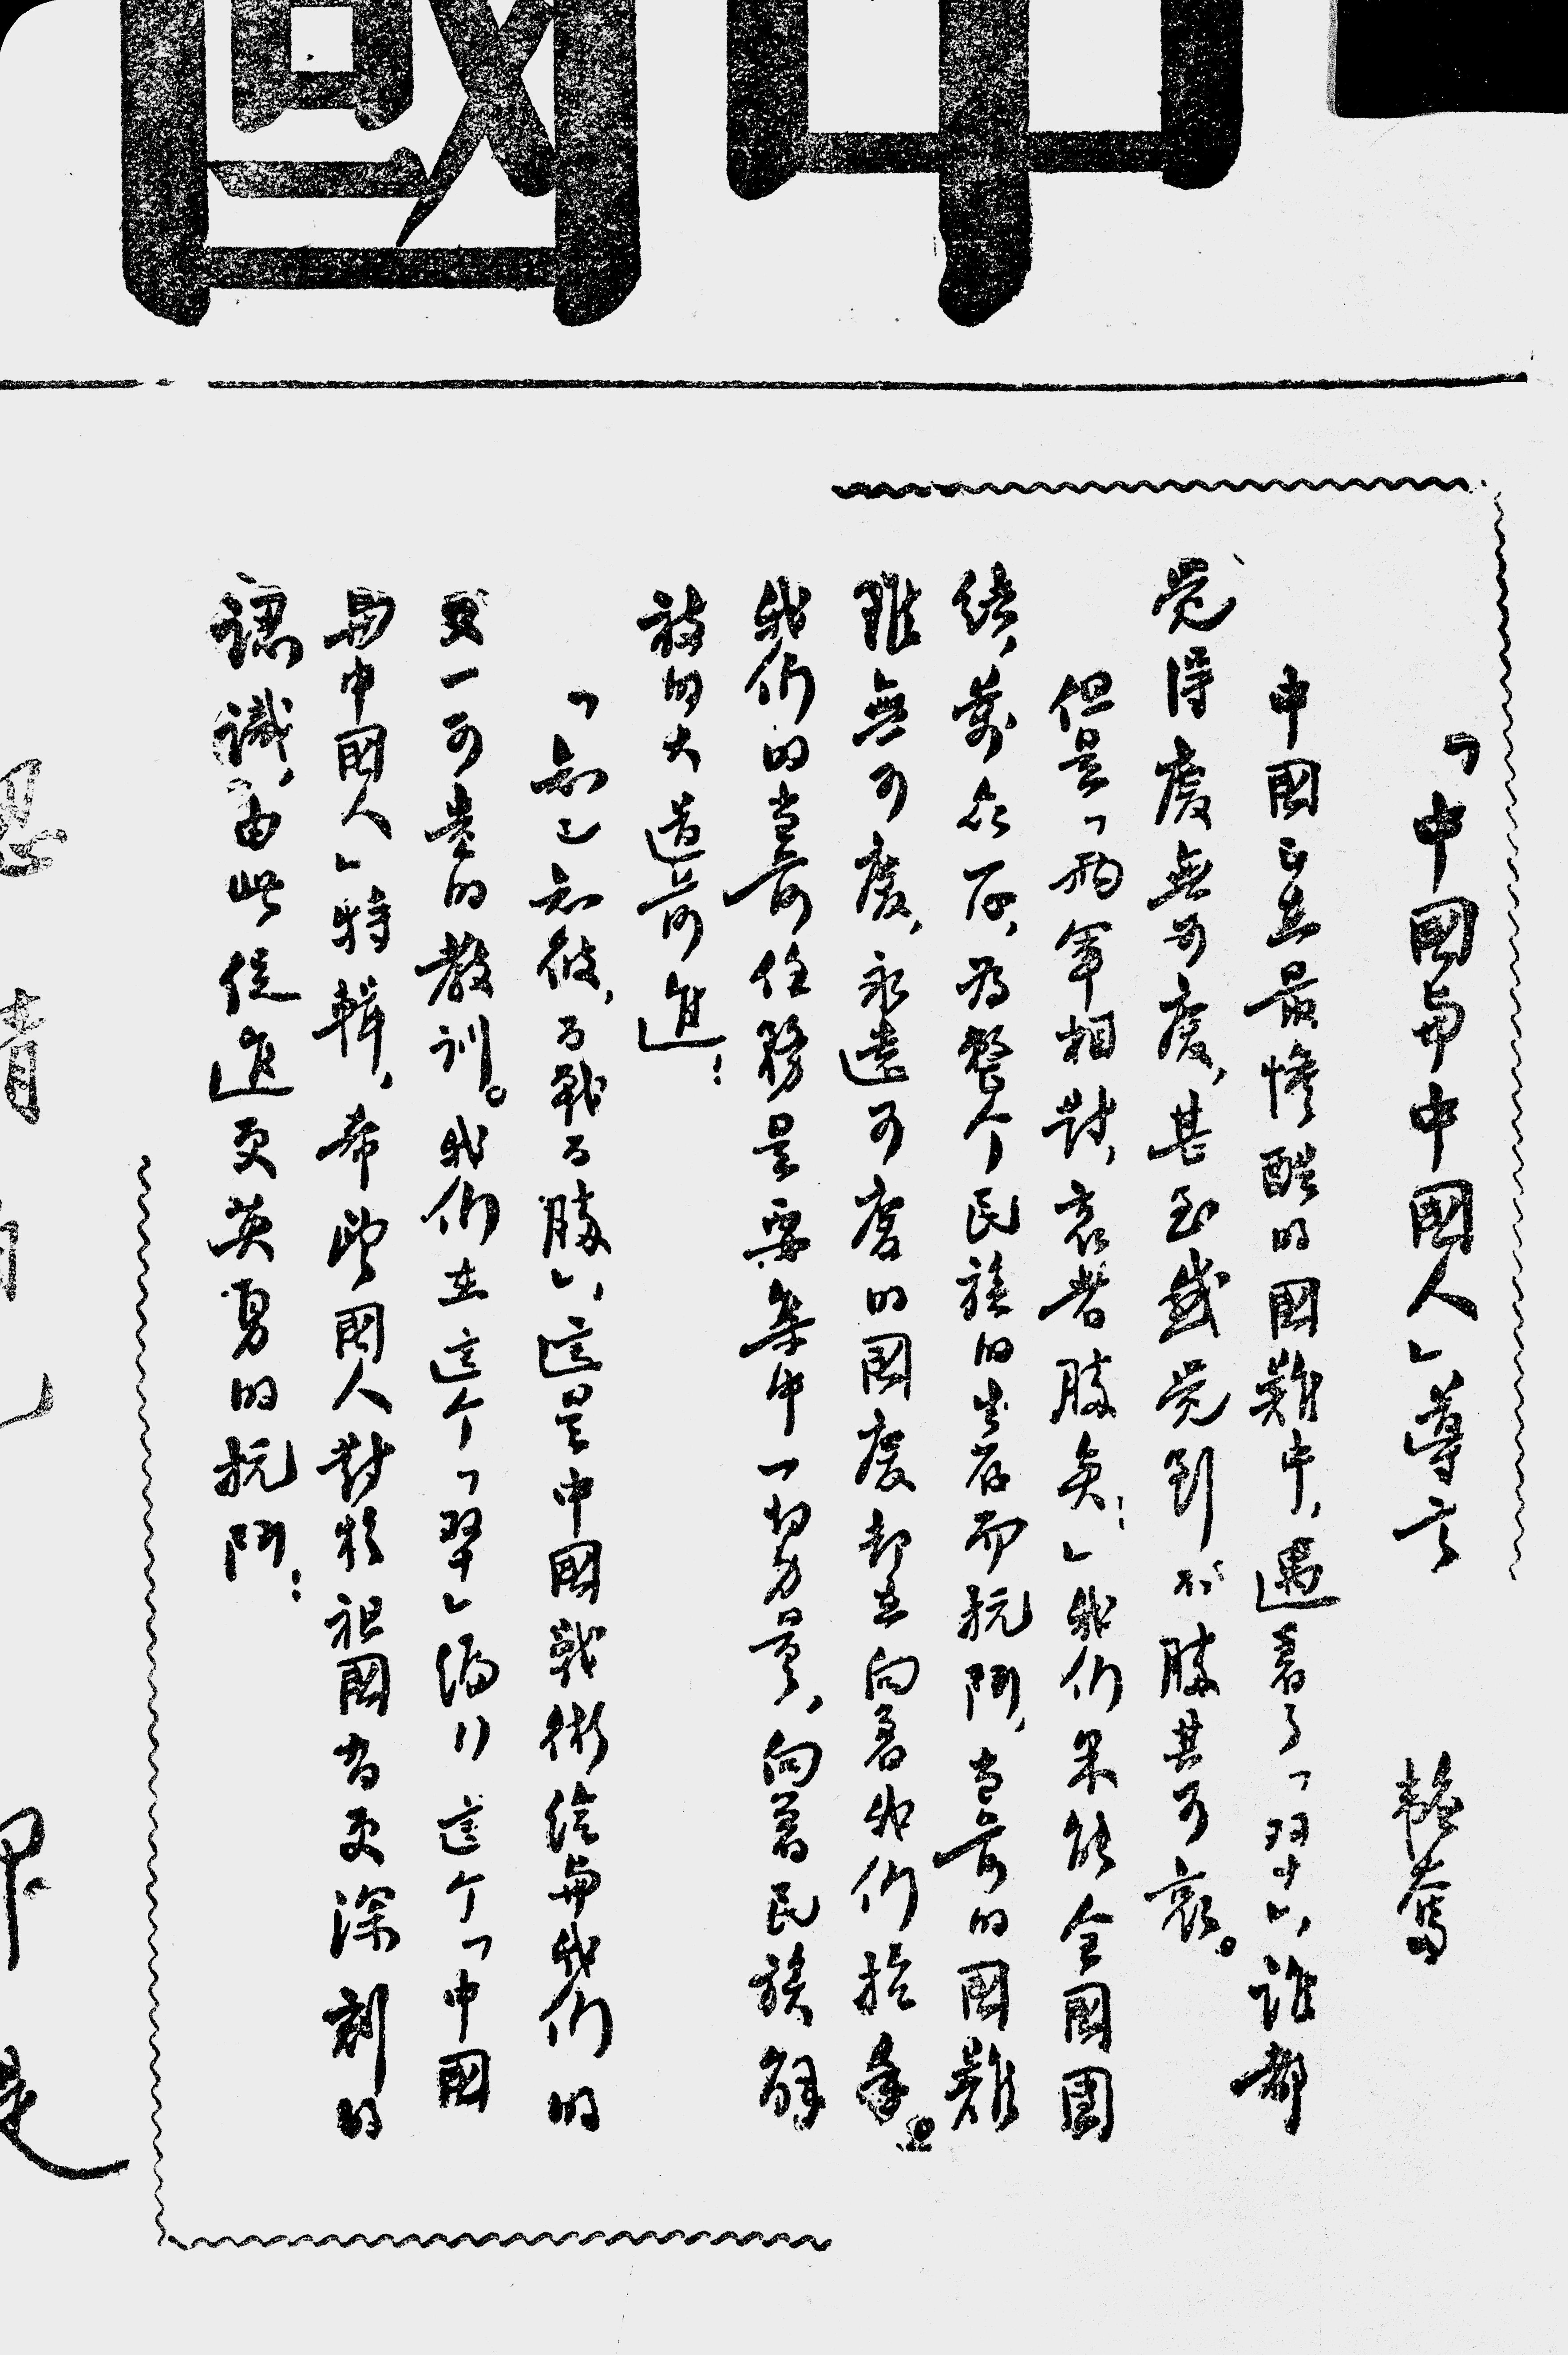 中國
「中國與中國人」導言 韜奮
中國正在最慘酷的國難中,遇着了「双十」,誰都
覺得慶無可慶,甚至感覺到不勝其可哀。
但是「兩軍相對,哀者勝矣!」我們果能全國團
結,萬众一心,為整个民族的生存而抗鬥,当前的國難
雖無可慶,永遠可慶的國慶却在向着我們招手。
我們的当前任務是要集中一切力量,向着民族解
放的大道前進!
「知己知彼,百戰百勝」,這是中國戰術給與我們的
又一可貴的教訓。我們在這个「双十」編行這个「中國
與中國人」特輯,希望國人對於祖國有更深刻的
認識,由此促進更英勇的抗鬥!